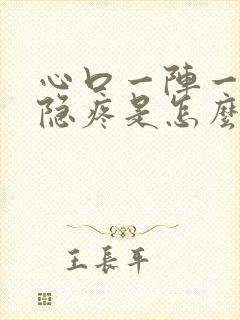 心口一陣一
隐疼是怎麼
王長平